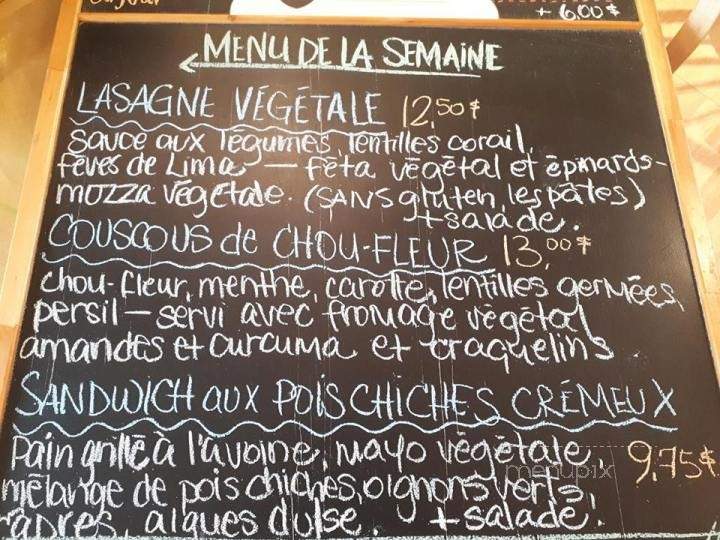 + 6,00 $
MENU DE LA SEMAINE
LASAGNE VÉGÉTALE 12,50 $
sauce aux légumes, lentilles corail,
fèves de Lima — fêta végétal et épinards -
mozza végétale. (SANS gluten, les pâtes)
+ salade.
COUSCOUS de CHOU-FLEUR 13,00 $
chou-fleur, menthe, carotte, lentilles germées,
persil — servi avec fromage végétal
amandes et curcuma et craquelins
SANDWICH aux POIS CHICHES CRÉMEUX
Pain grillé à l'avoine, mayo végétale, 9,75 $
mélange de pois chiches, oignons verts,
câpres, algues dulse. + salade.
menupix